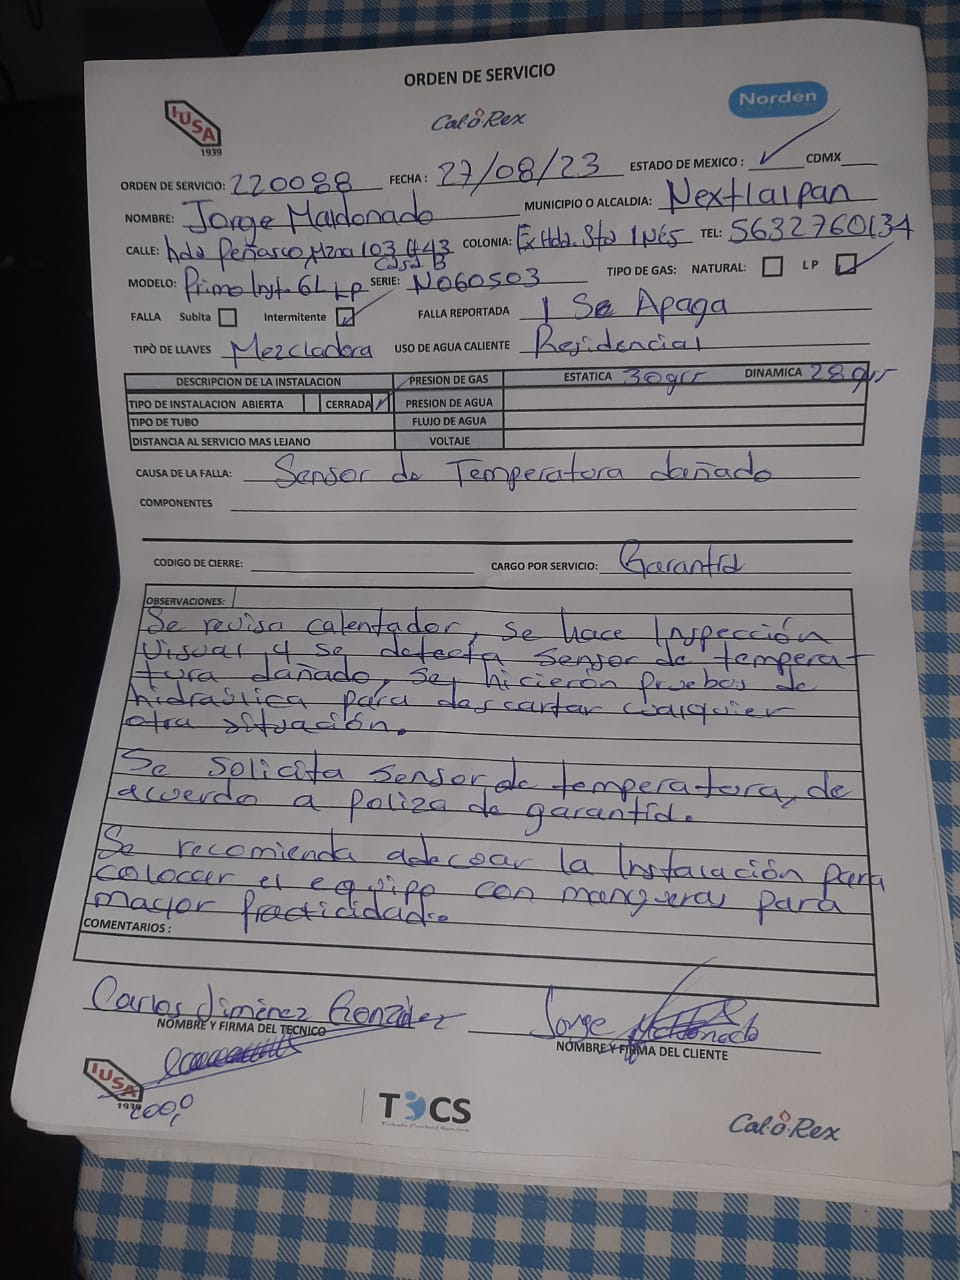 ORDEN DE SERVICIO
IUSA
1939
Cal-o-Rex
Norden
ORDEN DE SERVICIO: 220088 FECHA: 27/08/23 ESTADO DE MEXICO: ✓ CDMX
NOMBRE: Jorge Maldonado MUNICIPIO O ALCALDIA: Nextlalpan
CALLE: Hda Peñasco, Mzna 103 #43 Casa B COLONIA: Ex Hda. Sta INÉS TEL: 5632760134
MODELO: Primo Inst. 6L LP SERIE: N060503 TIPO DE GAS: NATURAL: LP ✓
FALLA Subita Intermitente ✓ FALLA REPORTADA 1 Se Apaga
TIPO DE LLAVES Mezcladora USO DE AGUA CALIENTE Residencial
DESCRIPCION DE LA INSTALACION PRESION DE GAS ESTATICA 30grs DINAMICA 28grs
TIPO DE INSTALACION ABIERTA CERRADA ✓ PRESION DE AGUA
TIPO DE TUBO FLUJO DE AGUA
DISTANCIA AL SERVICIO MAS LEJANO VOLTAJE
CAUSA DE LA FALLA: Sensor de Temperatura dañado
COMPONENTES
CODIGO DE CIERRE: CARGO POR SERVICIO: Garantía
OBSERVACIONES:
Se revisa calentador, se hace Inspección
Visual y se detecta sensor de tempera-
tura dañado, se hicierón pruebas de
hidraúlica para descartar cualquier
otra situación.
Se solicita sensor de temperatura, de
acuerdo a poliza de garantía.
Se recomienda adecuar la Instalación para
colocar el equipo con mangueras para
mayor practicidad.
COMENTARIOS:
Carlos Jiménez González Jorge Maldonado
NOMBRE Y FIRMA DEL TECNICO NOMBRE Y FIRMA DEL CLIENTE
IUSA
1939
TOCS
Cal-o-Rex